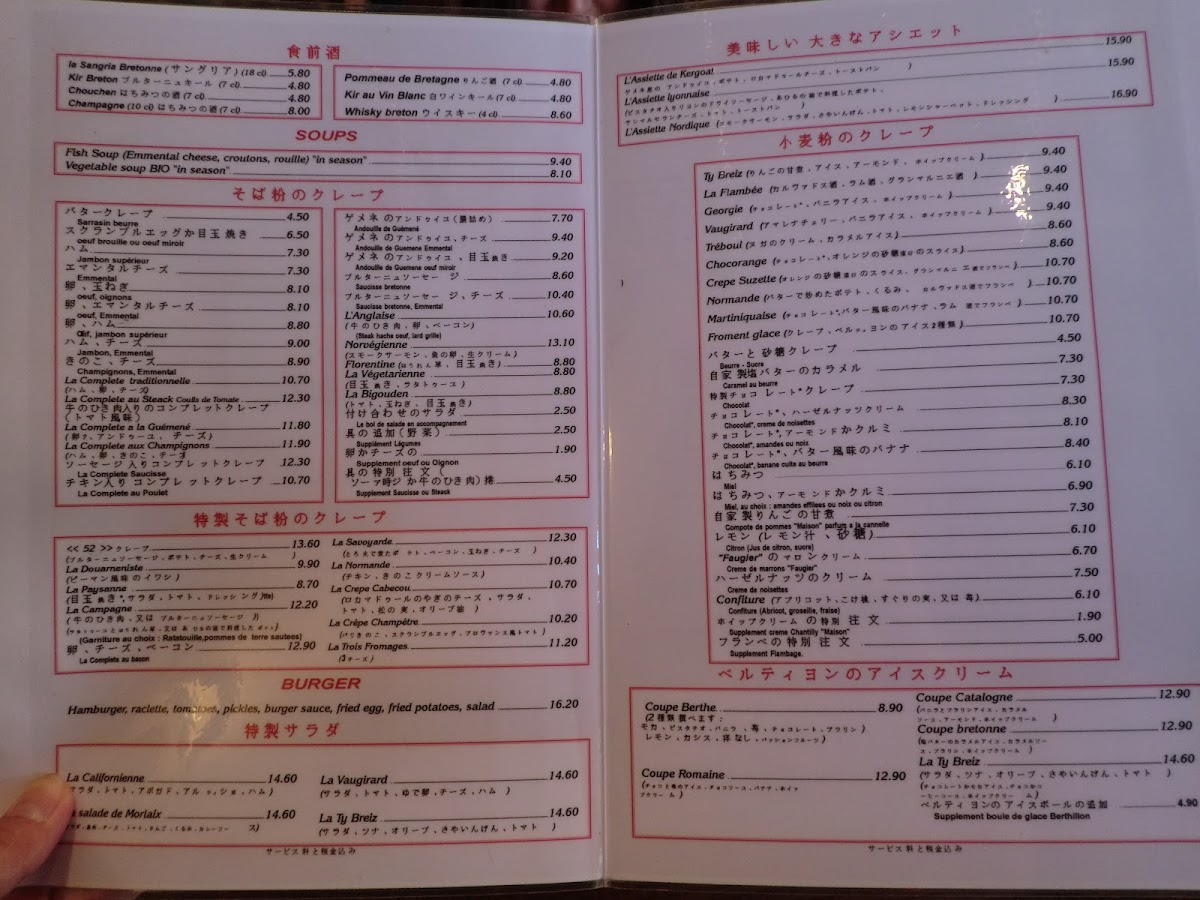 食前酒
la Sangria Bretonne (サングリア) (18 cl) 5.80
Kir Breton ブルターニュキール (7 cl) 4.80
Chouchen はちみつの酒 (7 cl) 4.80
Champagne (10 cl) はちみつの酒 (7 cl) 8.00
Pommeau de Bretagne りんご酒 (7 cl) 4.80
Kir au Vin Blanc 白ワインキール (7 cl) 4.80
Whisky breton ウイスキー (4 cl) 8.60
SOUPS
Fish Soup (Emmental cheese, croutons, rouille) "in season" 9.40
Vegetable soup BIO "in season" 8.10
そば粉のクレープ
バタークレープ 4.50
Sarrasin beurre
スクランブルエッグか目玉焼き 6.50
oeuf brouille ou oeuf miroir
ハム 7.30
Jambon supérieur
エマンタルチーズ 7.30
Emmental
卵、玉ねぎ 8.10
oeuf, oignons
卵、エマンタルチーズ 8.10
oeuf, Emmental
卵、ハム 8.80
Œif, jambon supérieur
ハム、チーズ 9.00
Jambon, Emmental
きのこ、チーズ 8.90
Champignons, Emmental
La Complete traditionnelle 10.70
(ハム、卵、チーズ)
La Complete au Steack Coulis de Tomate 12.30
牛のひき肉入りのコンプレットクレープ
(トマト風味)
La Complete a la Guémené 11.80
La Complete aux Champignons 11.90
(ハム、卵、きのこ、チーズ)
ソーセージ入りコンプレットクレープ 12.30
La Complete Saucisse
チキン入りコンプレットクレープ 10.70
La Complete au Poulet
ゲメネのアンドゥイユ(腸詰め) 7.70
Andouille de Guémené
ゲメネのアンドゥイユ、チーズ 9.40
Andouille de Guemene Emmental
ゲメネのアンドゥイユ、目玉焼き 9.20
Andouille de Guemene oeuf miroir
ブルターニュソーセー ジ 8.60
Saucisse bretonne
ブルターニュソーセー ジ、チーズ 10.40
Saucisse bretonne, Emmental
L'Anglaise 10.60
(牛のひき肉、卵、ベーコン)
(Steak hache oeuf, lard grille)
Norvégienne 13.10
(スモークサーモン、魚の卵、生クリーム)
Florentine (ほうれん草、目玉焼き) 8.80
La Végetarienne 8.80
(目玉焼き、ラタトゥーユ)
La Bigouden 8.80
(トマト、玉ねぎ、目玉焼き)
付け合わせのサラダ 2.50
Le bol de salade en accompagnement
具の追加(野菜) 2.50
Supplément Légumes
卵かチーズの 1.90
Supplement oeuf ou Oignon
具の特別注文 (
ソーマ時ジか牛のひき肉)捲 4.50
Supplement Saucisse ou Steack
特製そば粉のクレープ
<< 52 >> クレープ 13.60
(ブルターニュソーセージ、ポテト、チーズ、生クリーム )
La Douarneniste 9.90
(ピーマン風味のイワシ)
La Paysanne 8.70
La Campagne 12.20
(牛のひき肉、又は ブルターニュソーセージ ))
(Garniture au choix : Ratatouille,pommes de terre sautees)
卵、チーズ、ベーコン 12.90
La Complets au bacon
La Savoyarde 12.30
La Normande 10.40
(チキン、きのこクリームソース)
La Crepe Cabecou 10.70
(ロカマドゥールのやぎのチーズ、サラダ、
トマト、松の実、オリーブ油 )
La Crêpe Champêtre 10.20
La Trois Fromages 11.20
(3チーズ)
BURGER
Hamburger, raclette, tomatoes, pickles, burger sauce, fried egg, fried potatoes, salad 16.20
特製サラダ
La Californienne 14.60
La salade de Morlaix 14.60
La Vaugirard 14.60
(サラダ、トマト、ゆで卵、チーズ、ハム )
La Ty Breiz 14.60
(サラダ、ツナ、オリーブ、さやいんげん、トマト )
サービス料と税金込み
美味しい 大きなアシエット
L'Assiette de Kergoat 15.90
L'Assiette lyonnaise 15.90
L'Assiette Nordique (スモークサーモン、サラダ、さやいんげん、トマト、レモンシャーベット、ドレッシング ) 16.90
小麦粉のクレープ
Ty Breiz (りんごの甘煮、アイス、アーモンド、ホイップクリーム ) 9.40
La Flambée (カルヴァドス酒、ラム酒、グランマルニエ酒 ) 9.40
Georgie (チョコレート*、バニラアイス、ホイップクリーム ) 9.40
Vaugirard (アマレナチェリー、バニラアイス、ホイップクリーム ) 9.40
Tréboul (ヌガのクリーム、カラメルアイス) 8.60
Chocorange (チョコレート*,オレンジの砂糖漬けのスライス) 8.60
Crepe Suzette (オレンジの砂糖漬けのスライス、グランマルニエ酒でフランベ ) 10.70
Normande (バターで炒めたポテト、くるみ、 カルヴァドス酒でフランベ ) 10.70
Martiniquaise (チョコレート*,バター風味のバナナ、ラム 酒でフランベ ) 10.70
Froment glace (クレープ、ベルティヨンのアイス2種類) 10.70
バターと砂糖クレープ 4.50
Beurre - Sucre
自家製塩バターのカラメル 7.30
Caramel au beurre
特製チョコレート*クレープ 7.30
Chocolat
チョコレート*、ハーゼルナッツクリーム 8.30
Chocolat*, creme de noisettes
チョコレート*、アーモンドかクルミ 8.10
Chocolat*, amandes ou noix
チョコレート*、バター風味のバナナ 8.40
Chocolat*, banane cuite au beurre
はちみつ 6.10
Miel
はちみつ、アーモンドかクルミ 6.90
Miel, au choix : amandes effilees ou noix ou citron
自家製りんごの甘煮 7.30
Compote de pommes "Maison" parfum a la cannelle
レモン (レモン汁、砂糖) 6.10
Citron (Jus de citron, sucre)
"Faugier" のマロンクリーム 6.70
Creme de marrons "Faugier"
ハーゼルナッツのクリーム 7.50
Creme de noisettes
Confiture (アプリコット、こけ桃、すぐりの実、又は苺) 6.10
Confiture (Abricot, groseille, fraise)
ホイップクリームの特別注文 1.90
Supplement creme Chantilly "Maison"
フランベの特別注文 5.00
Supplement Flambage.
ベルティヨンのアイスクリーム
Coupe Berthe 8.90
(2種類選べます:
モカ、ピスタチオ、バニラ、苺、チョコレート、プラリン)
レモン、カシス、洋なし、パッションフルーツ)
Coupe Romaine 12.90
Coupe Catalogne 12.90
Coupe bretonne 12.90
La Ty Breiz 14.60
(サラダ、ツナ、オリーブ、さやいんげん、トマト )
ベルティヨンのアイスボールの追加 4.90
Supplement boule de glace Berthillon
サービス料と税金込み